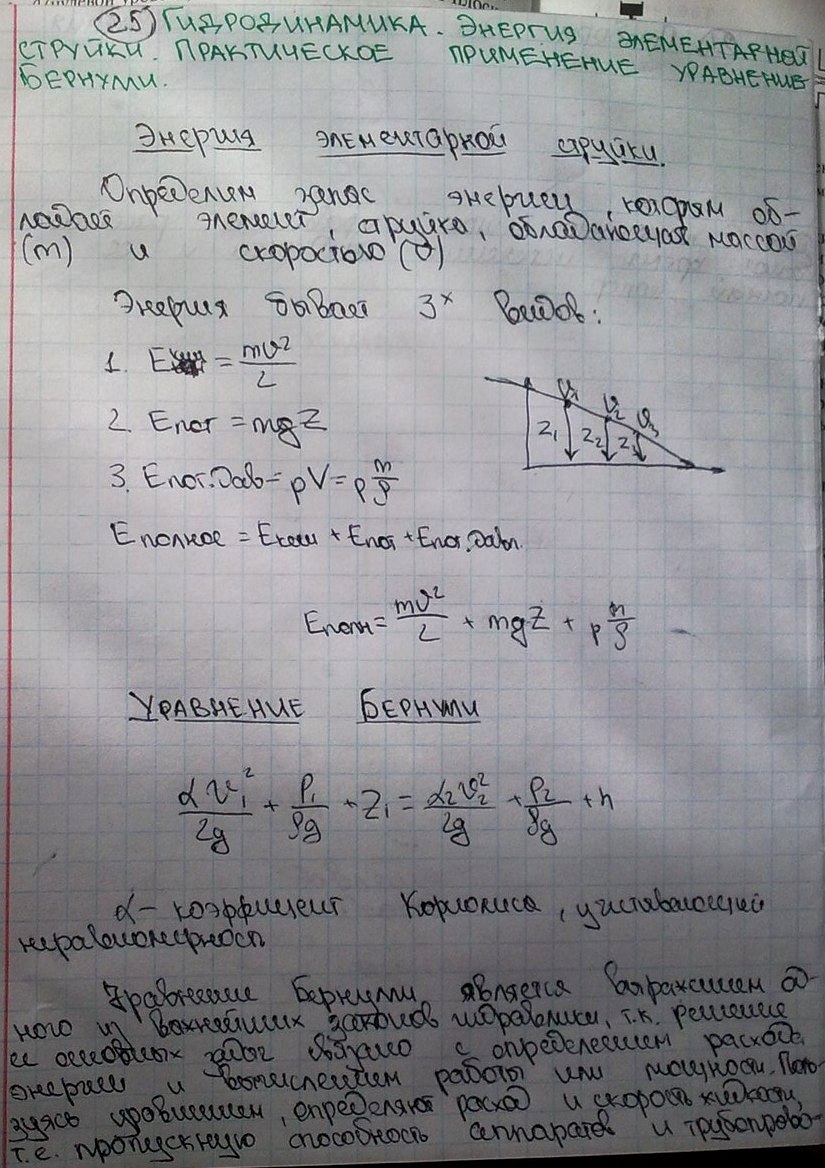 25 ГИДРОДИНАМИКА. ЭНЕРГИЯ ЭЛЕМЕНТАРНОЙ
СТРУЙКИ. ПРАКТИЧЕСКОЕ ПРИМЕНЕНИЕ УРАВНЕНИЕ
БЕРНУЛИ.
Энергия элементарной струйки.
Определим запас энергии, которым об-
ладает элемент, струйка, обладающая массой
(m) и скоростью (υ)
Энергия бывает 3х видов:
1. Eкин = mυ²/2
2. Eпот = mgZ
3. Eпот.Дав = pV = p m/ρ
Eполное = Eкин + Eпот + Eпот.Давл.
υ1 υ2 υ3
Z1 Z2 Z3
Eполн = mυ²/2 + mgZ + p m/ρ
УРАВНЕНИЕ БЕРНУЛИ
αυ1²/2g + P1/ρg + Z1 = α2υ2²/2g + P2/ρg + h
α – коэффициент Кориолиса, учитывающий
неравномерность
Уравнение Бернулли является выражением од-
ного из важнейших законов гидравлики, т.к. решение
ее основных задач связано с определением расхода
энергии и вычислением работы или мощности. Поль-
зуясь уравнением, определяют расход и скорость жидкости,
т.е. пропускную способность аппаратов и трубопрово-